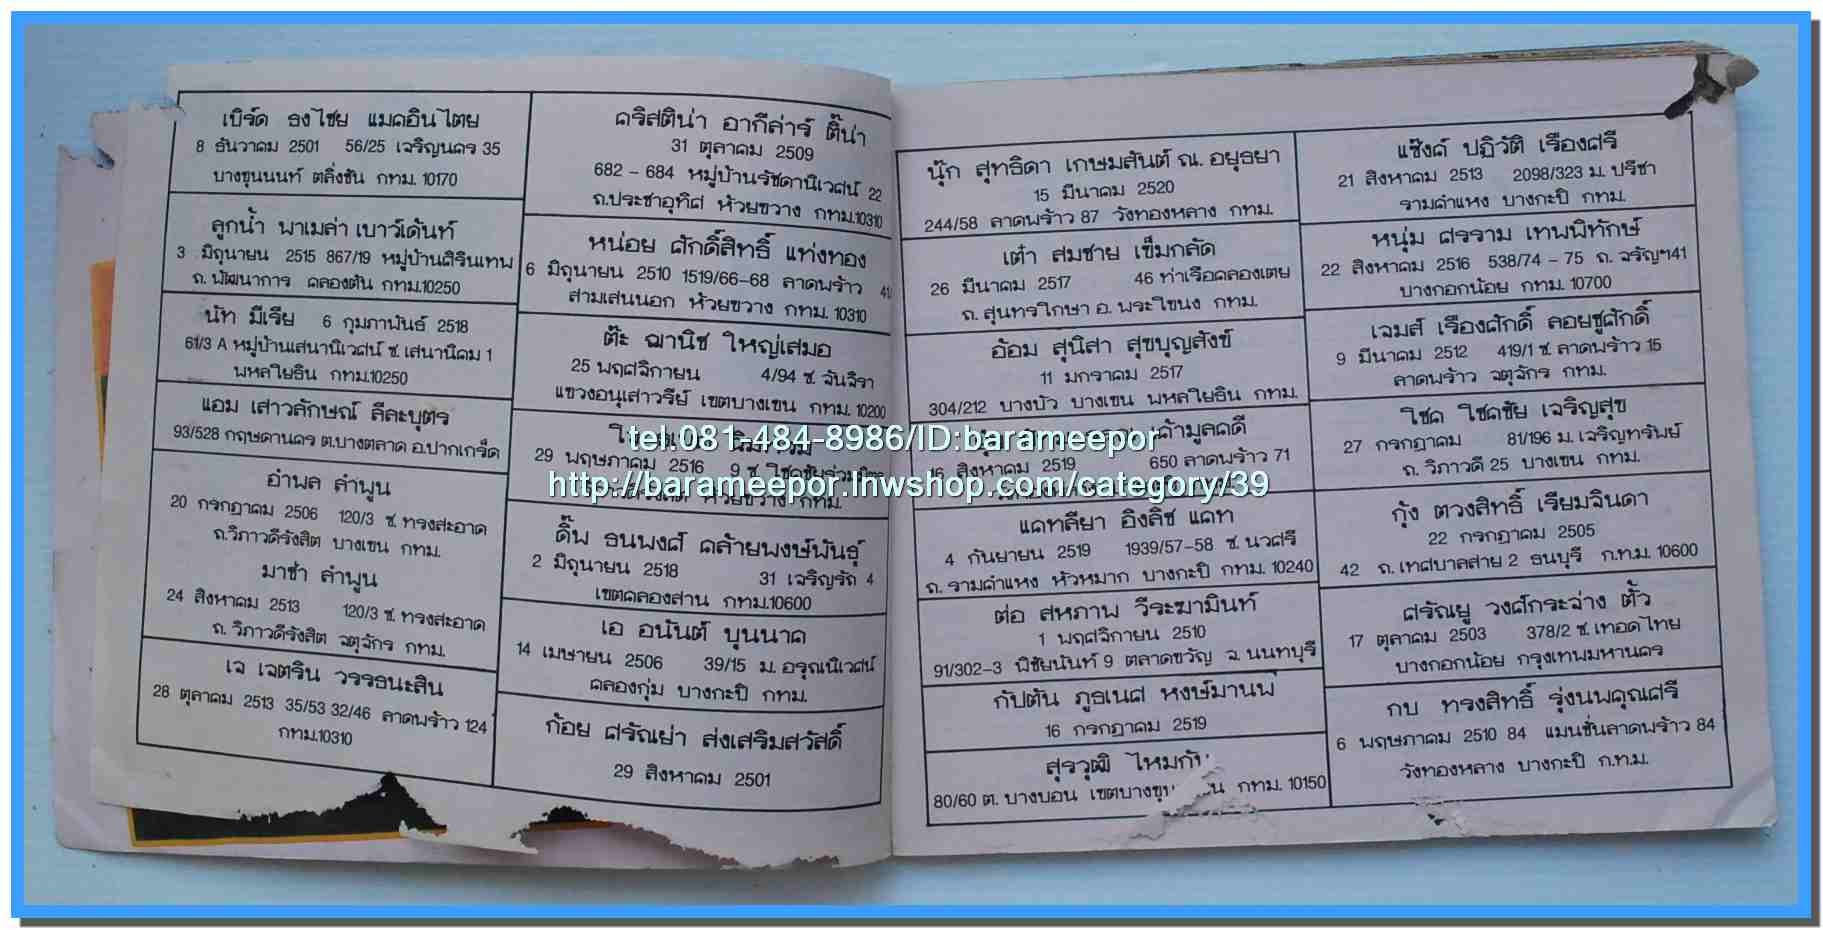 เบิร์ด ธงไชย แมคอินไตย
8 ธันวาคม 2501 56/25 เจริญนคร 35
บางขุนนนท์ ตลิ่งชัน กทม. 10170
ลูกน้ำ พาเมล่า เบาว์เด้นท์
3 มิถุนายน 2515 867/19 หมู่บ้านสิรินเทน
ถ. พัฒนาการ คลองตัน กทม.10250
นัท มีเรีย 6 กุมภาพันธ์ 2518
61/3 A หมู่บ้านเสนานิเวศน์ ซ. เสนานิคม 1
พหลโยธิน กทม.10250
แอม เสาวลักษณ์ ลีละบุตร
93/528 กฤษดานคร ต.บางตลาด อ.ปากเกร็ด
อำพล ลำพูน
20 กรกฎาคม 2506 120/3 ซ. ทรงสะอาด
ถ.วิภาวดีรังสิต บางเขน กทม.
มาช่า ลำพูน
24 สิงหาคม 2513 120/3 ซ. ทรงสะอาด
ถ. วิภาวดีรังสิต จตุจักร กทม.
เจ เจตริน วรรธนะสิน
28 ตุลาคม 2513 35/53 32/46 ลาดพร้าว 124
กทม.10310
คริสติน่า อากีล่าร์ ติ๊น่า
31 ตุลาคม 2509
682 - 684 หมู่บ้านรัชดานิเวศน์ 22
ถ.ประชาอุทิศ ห้วยขวาง กทม.10310
หน่อย ศักดิ์สิทธิ์ แท่งทอง
6 มิถุนายน 2510 1519/66-68 ลาดพร้าว 41
สามเสนนอก ห้วยขวาง กทม. 10310
ต๊ะ ฌานิช ใหญ่เสมอ
25 พฤศจิกายน 4/94 ซ. จันจิรา
แขวงอนุเสาวรีย์ เขตบางเขน กทม. 10200
29 พฤษภาคม 2516 9 ซ. โชคชัยร่วมมิตร
ห้วยขวาง กทม.
ดิ๊พ ธนพงศ์ คล้ายพงษ์พันธุ์
2 มิถุนายน 2518 31 เจริญรัถ 4
เขตคลองสาน กทม.10600
เอ อนันต์ บุนนาค
14 เมษายน 2506 39/15 ม. อรุณนิเวศน์
คลองกุ่ม บางกะปิ กทม.
ก้อย ศรัณย่า ส่งเสริมสวัสดิ์
29 สิงหาคม 2501
นุ๊ก สุทธิดา เกษมสันต์ ณ. อยุธยา
15 มีนาคม 2520
244/58 ลาดพร้าว 87 วังทองหลาง กทม.
เต๋า สมชาย เข็มกลัด
26 มีนาคม 2517 46 ท่าเรือคลองเตย
ถ. สุนทรโกษา อ. พระโขนง กทม.
อ้อม สุนิสา สุขบุญสังข์
11 มกราคม 2517
304/212 บางบัว บางเขน พหลโยธิน กทม.
ค้ามูลคดี
16 สิงหาคม 2519 650 ลาดพร้าว 71
แคทลียา อิงลิช แคท
4 กันยายน 2519 1939/57-58 ซ. นวศรี
ถ. รามคำแหง หัวหมาก บางกะปิ กทม. 10240
ต่อ สหภาพ วีระฆามินท์
1 พฤศจิกายน 2510
91/302-3 พิชัยนันท์ 9 ตลาดขวัญ จ. นนทบุรี
กัปตัน ภูธเนศ หงษ์มานพ
16 กรกฎาคม 2519
สุรวุฒิ ไหมกัน
80/60 ต. บางบอน เขตบางขุนเทียน กทม. 10150
แช๊งค์ ปฏิวัติ เรืองศรี
21 สิงหาคม 2513 2098/323 ม. ปรีชา
รามคำแหง บางกะปิ กทม.
หนุ่ม ศรราม เทพพิทักษ์
22 สิงหาคม 2516 538/74 - 75 ถ. จรัญฯ41
บางกอกน้อย กทม. 10700
เจมส์ เรืองศักดิ์ ลอยชูศักดิ์
9 มีนาคม 2512 419/1 ซ. ลาดพร้าว 15
ลาดพร้าว จตุจักร กทม.
โชค โชคชัย เจริญสุข
27 กรกฎาคม 81/196 ม. เจริญทรัพย์
ถ. วิภาวดี 25 บางเขน กทม.
กุ้ง ตวงสิทธิ์ เรียมจินดา
22 กรกฎาคม 2505
42 ถ. เทศบาลสาย 2 ธนบุรี ก.ท.ม. 10600
ศรัณยู วงศ์กระจ่าง ตั้ว
17 ตุลาคม 2503 378/2 ซ. เทอดไทย
บางกอกน้อย กรุงเทพมหานคร
กบ ทรงสิทธิ์ รุ่งนพคุณศรี
6 พฤษภาคม 2510 84 แมนชั่นลาดพร้าว 84
วังทองหลาง บางกะปิ ก.ท.ม.
tel.081-484-8986/ID:barameepor
http://barameepor.lnwshop.com/category/39